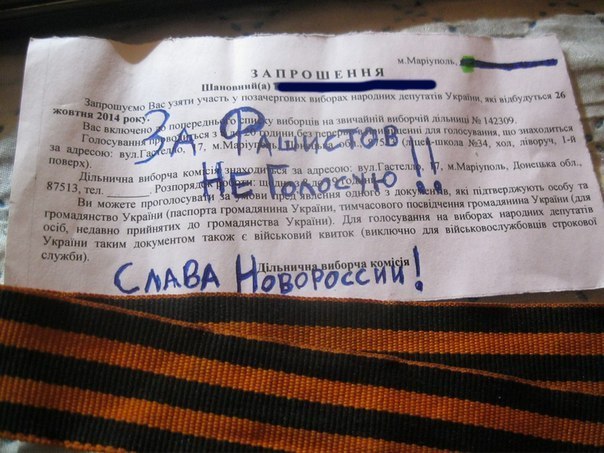 м.Маріуполь,
ЗАПРОШЕННЯ
Шановний(а)
Запрошуємо Вас узяти участь у позачергових виборах народних депутатів України, які відбудуться 26
жовтня 2014 року.
Вас включено до попереднього списку виборців на звичайній виборчій дільниці № 142309.
Голосування проводиться з години без перерви приміщенні для голосування, що знаходиться
за адресою: вул.Гастелло, 17, м.Маріуполь школа №34, хол, ліворуч, 1-й
поверх)
ЗА ФАШИСТОВ
НЕ ГОЛОСУЮ!!
Дільнична виборча комісія знаходиться за адресою: вул.Гастелло, 17, м.Маріуполь, Донецька обл.,
87513, тел. Розпорядок
Ви можете проголосувати за умови пред'явлення одного з документів, які підтверджують особу та
громадянство України (паспорта громадянина України, тимчасового посвідчення громадянина України (для
осіб, недавно прийнятих до громадянства України). Для голосування на виборах народних депутатів
України таким документом також є військовий квиток (виключно для військовослужбовців строкової
служби).
Дільнична виборча комісія
СЛАВА НОВОРОССИИ!